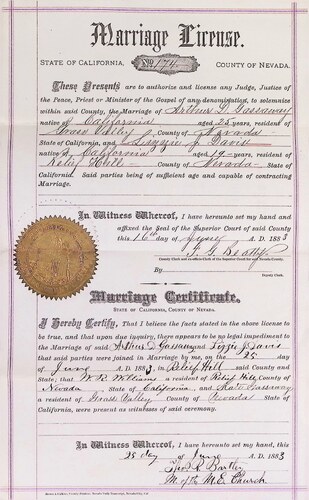 Marriage License.
STATE OF CALIFORNIA, No. 174 COUNTY OF NEVADA.
These Presents are to authorize and license any Judge, Justice of
the Peace, Priest or Minister of the Gospel of any denomination, to solemnize
within said County, the Marriage of Arthur D. Gassaway
native of California aged 25 years, resident of
Grass Valley County of Nevada
State of California, and Lizzie J. Davis
native of California aged 19 years, resident of
Relief Hill County of Nevada, State of
California. Said parties being of sufficient age and capable of contracting
Marriage.
In Witness Whereof, I have hereunto set my hand and
affixed the Seal of the Superior Court of said County
this 16th day of A. D. 1883
Beatty
County Clerk and ex-officio Clerk of the Superior Court, said Nevada County.
By
Deputy Clerk.
Marriage Certificate.
STATE OF CALIFORNIA, COUNTY OF NEVADA.
I Hereby Certify, That I believe the facts stated in the above license
to be true, and that upon due inquiry, there appears to be no legal impediment
to the Marriage of said Arthur D. Gassaway and Lizzie J. Davis
that said parties were joined in Marriage by me, on the 25 day
of June A. D. 1883, in Relief Hill said County and
State; that W. R. Williams a resident of Relief Hill, County of
Nevada, State of California, and Kate Gassaway
a resident of Grass Valley County of Nevada State of
California, were present as witnesses of said ceremony.
In Witness Whereof, I have hereunto set my hand, this
25 day of June A. D. 1883
Bartley
M. of the M. E. Church